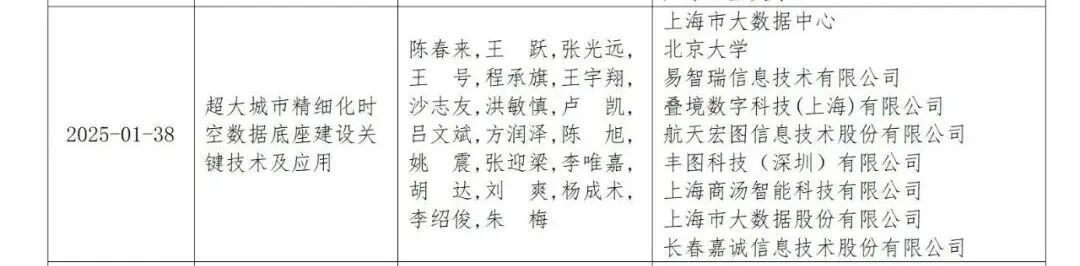 2025-01-38
超大城市精细化时
空数据底座建设关
键技术及应用
陈春来,王 跃,张光远,
王 号,程承旗,王宇翔,
沙志友,洪敏慎,卢 凯,
吕文斌,方润泽,陈 旭,
姚 震,张迎梁,李唯嘉,
胡 达,刘 爽,杨成术,
李绍俊,朱 梅
上海市大数据中心
北京大学
易智瑞信息技术有限公司
叠境数字科技(上海)有限公司
航天宏图信息技术股份有限公司
丰图科技（深圳）有限公司
上海商汤智能科技有限公司
上海市大数据股份有限公司
长春嘉诚信息技术股份有限公司